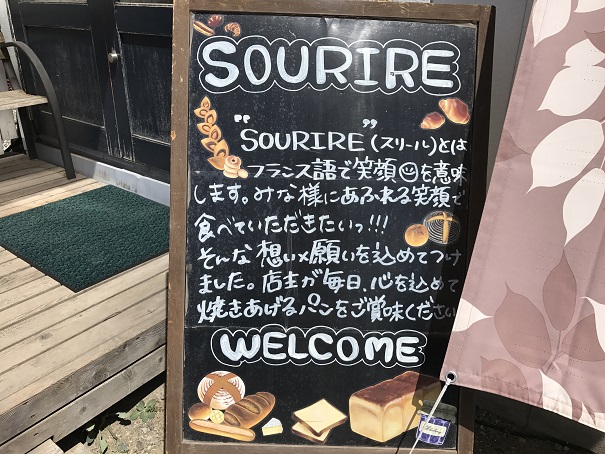 SOURIRE
"SOURIRE"(スリール)とは
フランス語で笑顔☺を意味
します。みな様にあふれる笑顔で
食べていただきたいっ!!!
そんな想いや願いを込めてつけ
ました。店主が毎日、心を込めて
焼きあげるパンをご賞味ください
WELCOME